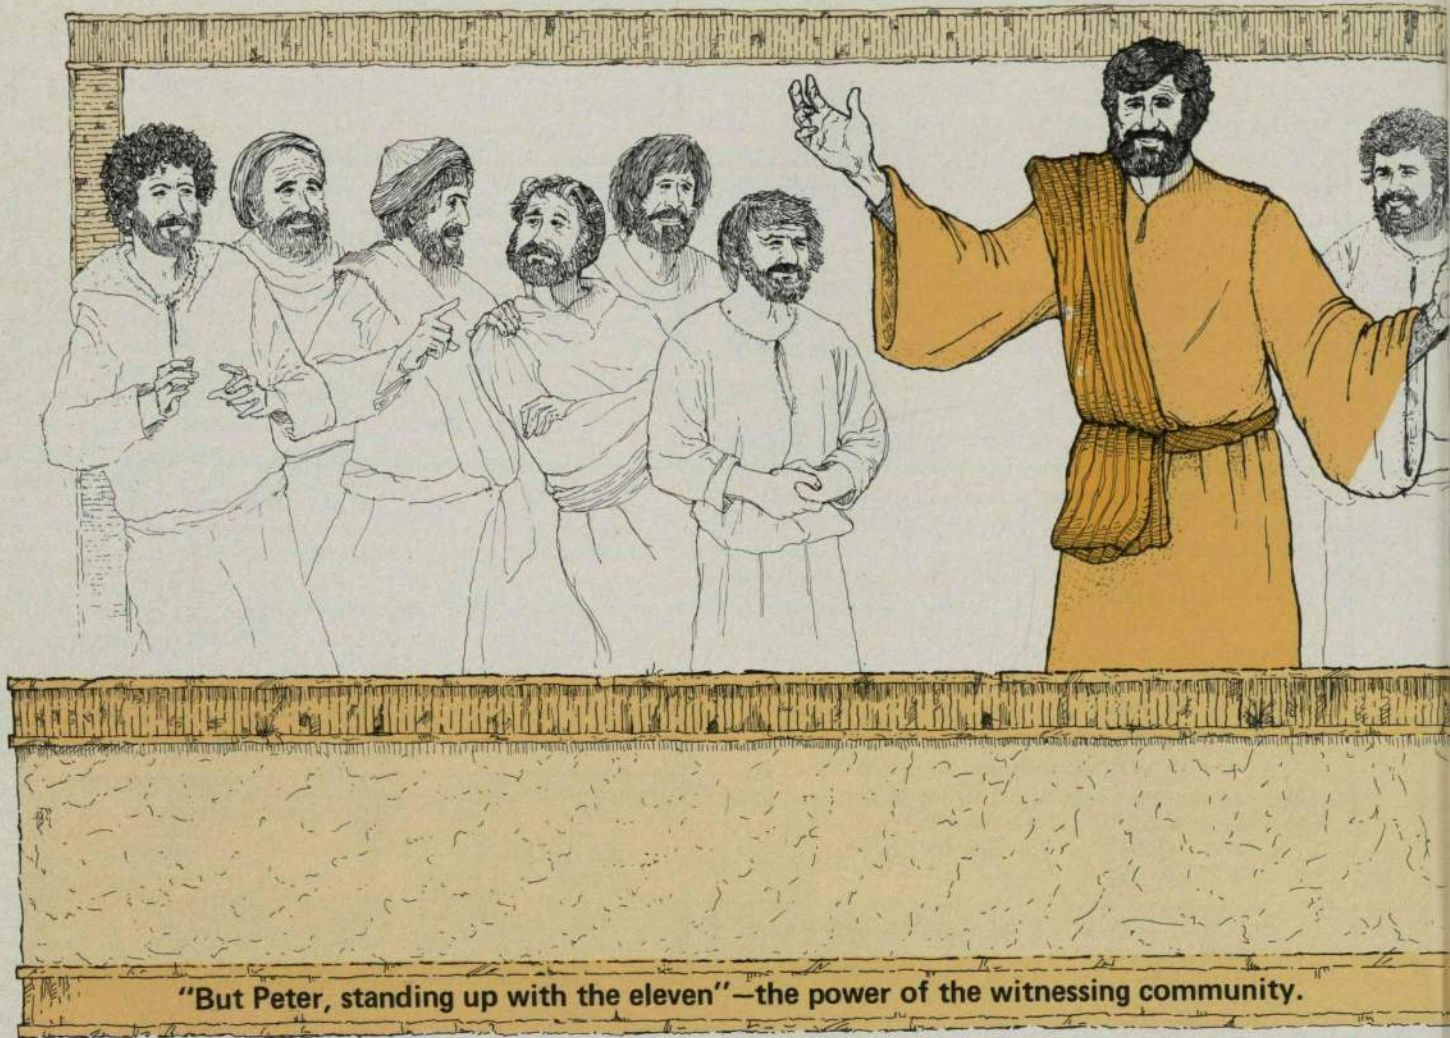 "But Peter, standing up with the eleven"—the power of the witnessing community.